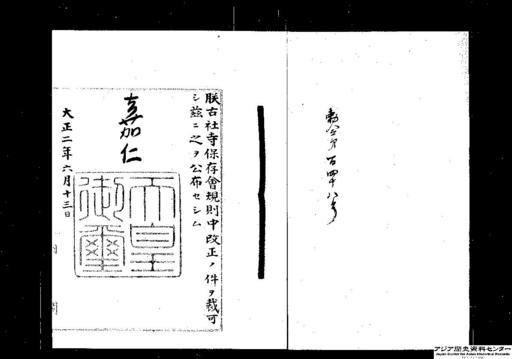 勅令第百四十八号
朕古社寺保存會規則中改正ノ件ヲ裁可
シ茲ニ之ヲ公布セシム
嘉仁
天皇御璽
大正二年六月十三日
内閣
アジア歴史資料センター
Japan Center for Asian Historical Records